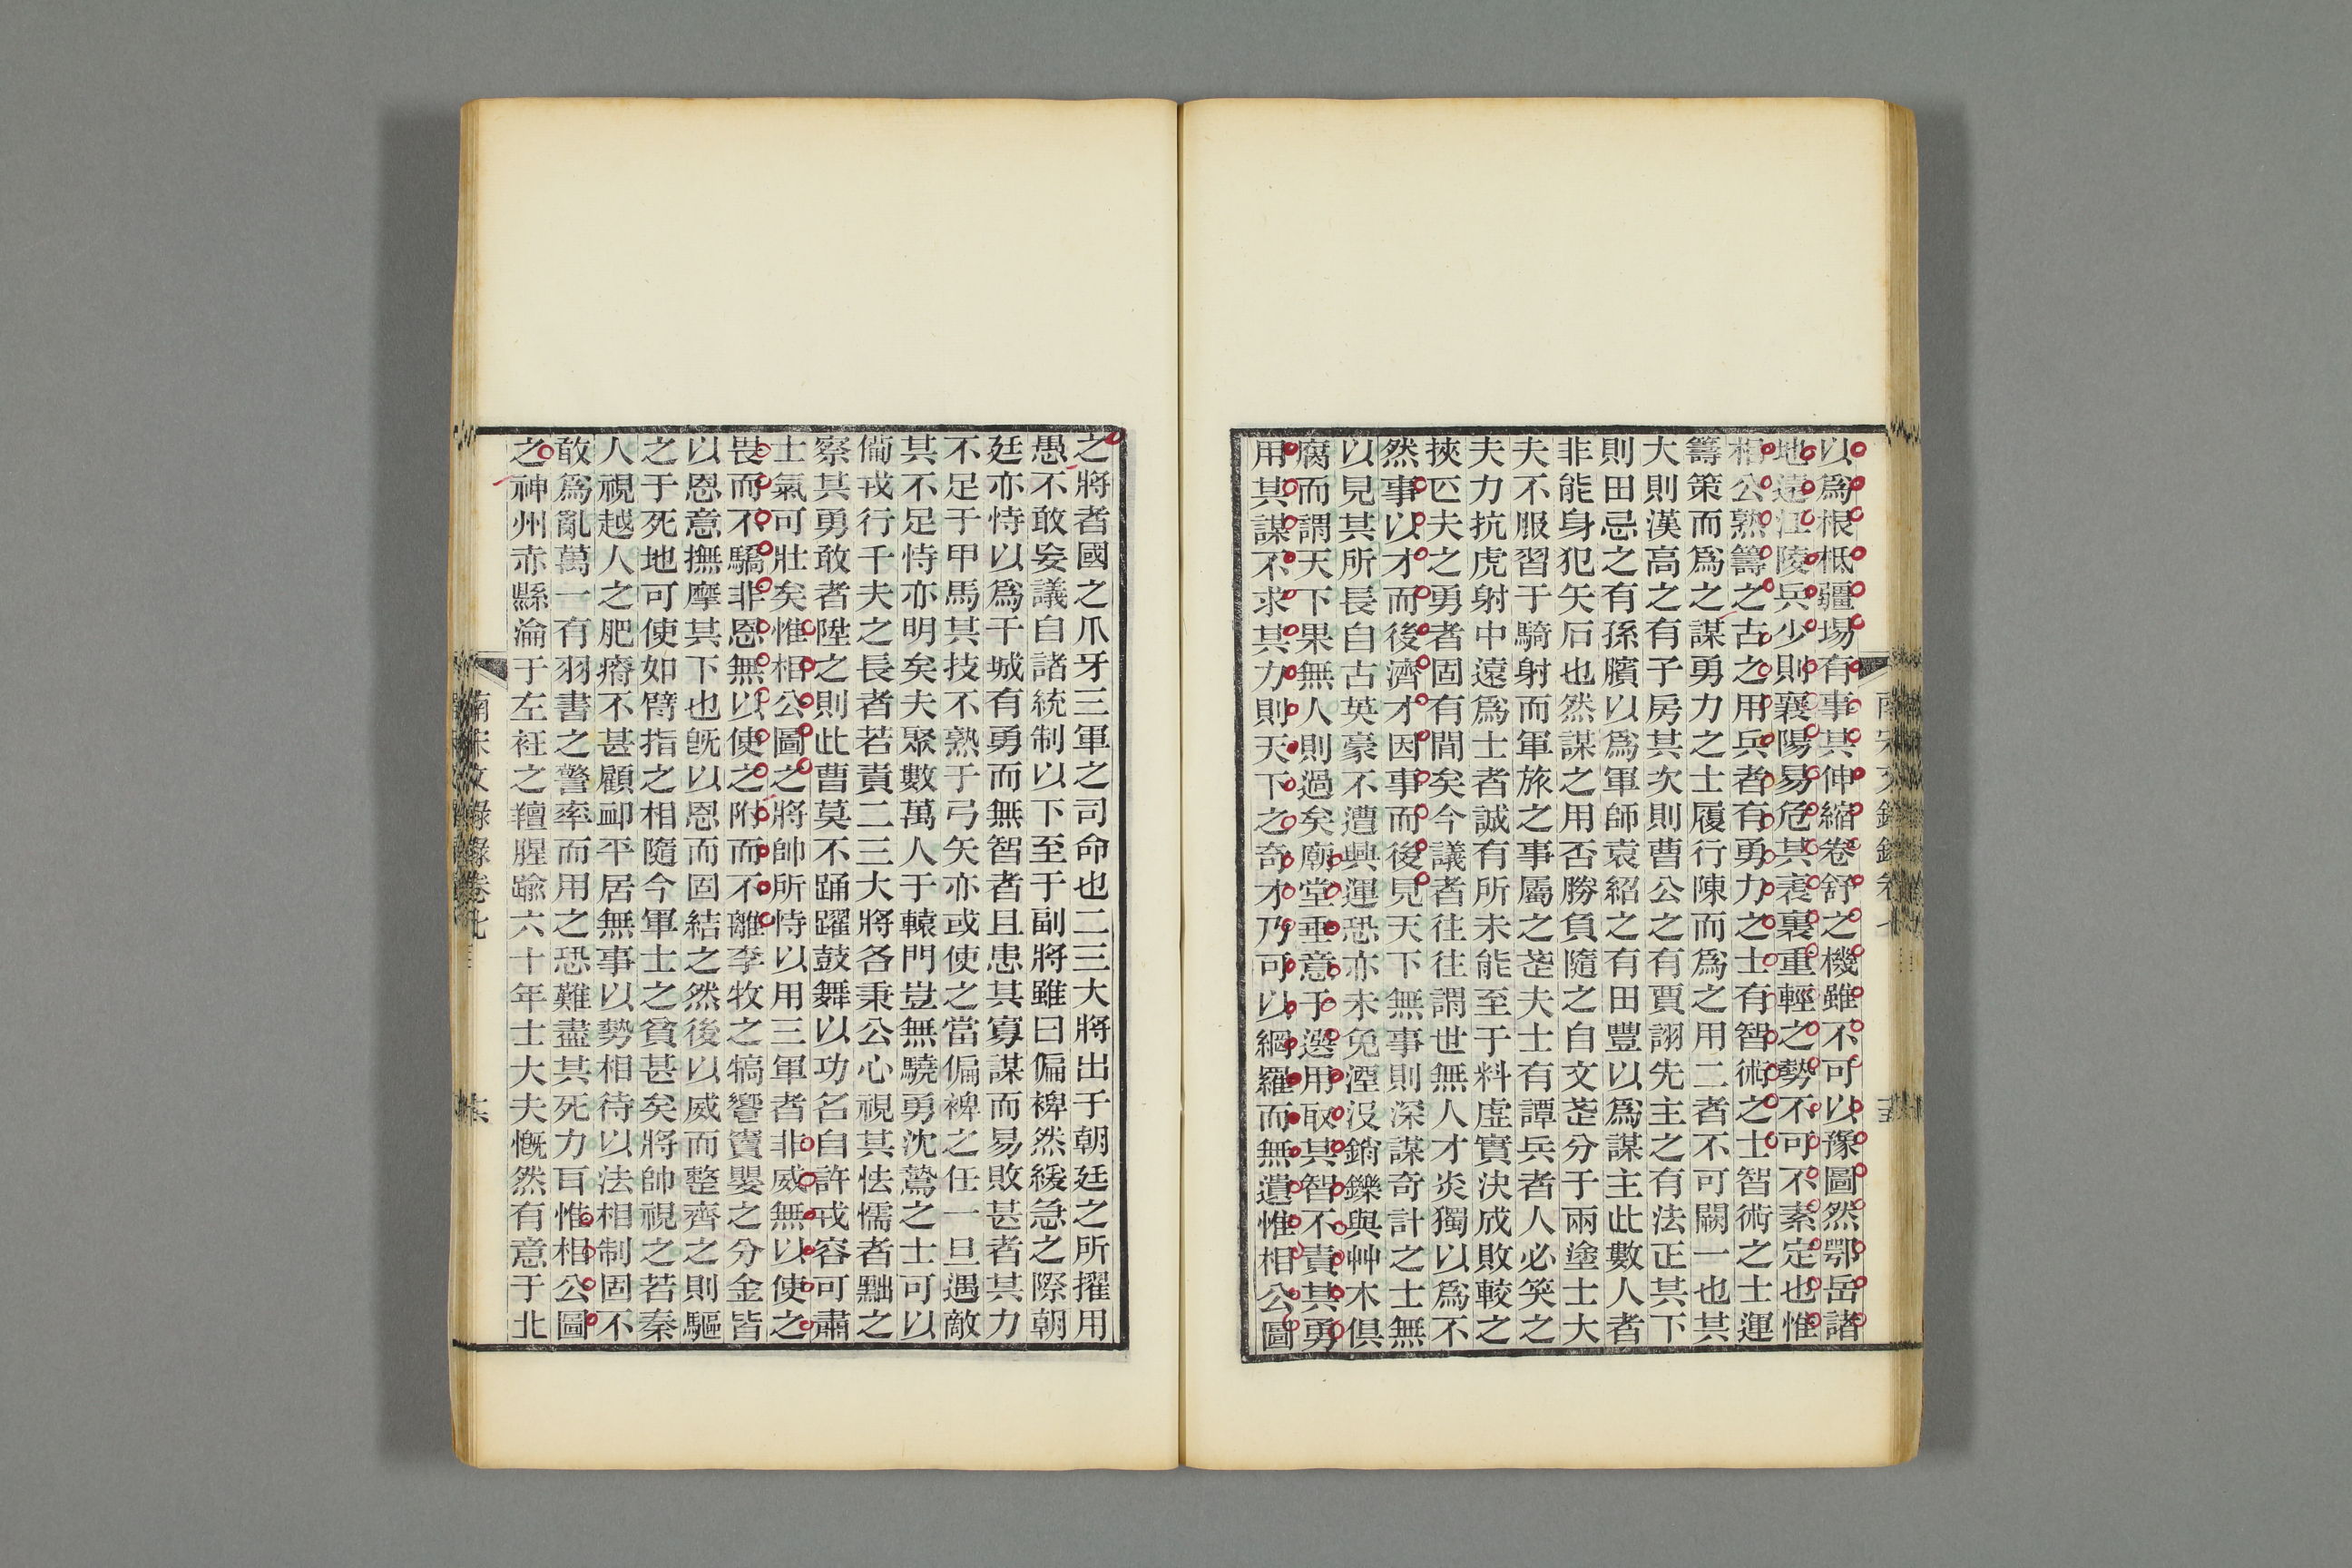 以爲根柢疆埸有事其伸縮卷舒之機雖不可以豫圖然鄂岳諸
地遠江陵兵少則襄陽易危其表裏重輕之勢不可不素定也惟
相公熟籌之古之用兵者有勇力之士有智術之士智術之士運
籌策而爲之謀勇力之士履行陳而爲之用二者不可闕一也其
大則漢高之有子房其次則曹公之有賈詡先主之有法正其下
則田忌之有孫臏以爲軍師袁紹之有田豐以爲謀主此數人者
非能身犯矢石也然謀之用否勝負隨之自文武分于兩塗士大
夫不服習于騎射而軍旅之事屬之武夫士有譚兵者人必笑之
夫力抗虎射中遠爲士者誠有所未能至于料虛實決成敗較之
挾匹夫之勇者固有間矣今議者往往謂世無人才炎獨以爲不
然事以才而後濟才因事而後見天下無事則深謀奇計之士無
以見其所長自古英豪不遭興運恐亦未免湮沒銷鑠與艸木俱
腐而謂天下果無人則過矣廟堂垂意于選用取其智不責其勇
用其謀不求其力則天下之奇才乃可以網羅而無遺惟相公圖
南宋文錄錄卷七
之將者國之爪牙三軍之司命也二三大將出于朝廷之所擢用
愚不敢妄議自諸統制以下至于副將雖曰偏裨然緩急之際朝
廷亦恃以爲干城有勇而無智者且患其寡謀而易敗甚者其力
不足于甲馬其技不熟于弓矢亦或使之當偏裨之任一旦遇敵
其不足恃亦明矣夫聚數萬人于轅門豈無驍勇沈鷙之士可以
備戎行千夫之長者若責二三大將各秉公心視其怯懦者黜之
察其勇敢者陞之則此曹莫不踊躍鼓舞以功名自許戎容可肅
士氣可壯矣惟相公圖之將帥所恃以用三軍者非威無以使之
畏而不驕非恩無以使之附而不離李牧之犒饗竇嬰之分金皆
以恩意撫摩其下也旣以恩而固結之然後以威而整齊之則驅
之于死地可使如臂指之相隨今軍士之貧甚矣將帥視之若秦
人視越人之肥瘠不甚顧卹平居無事以勢相待以法相制固不
敢爲亂萬一有羽書之警率而用之恐難盡其死力耳惟相公圖
之神州赤縣淪于左衽之羶腥踰六十年士大夫慨然有意于北
南宋文錄錄卷七